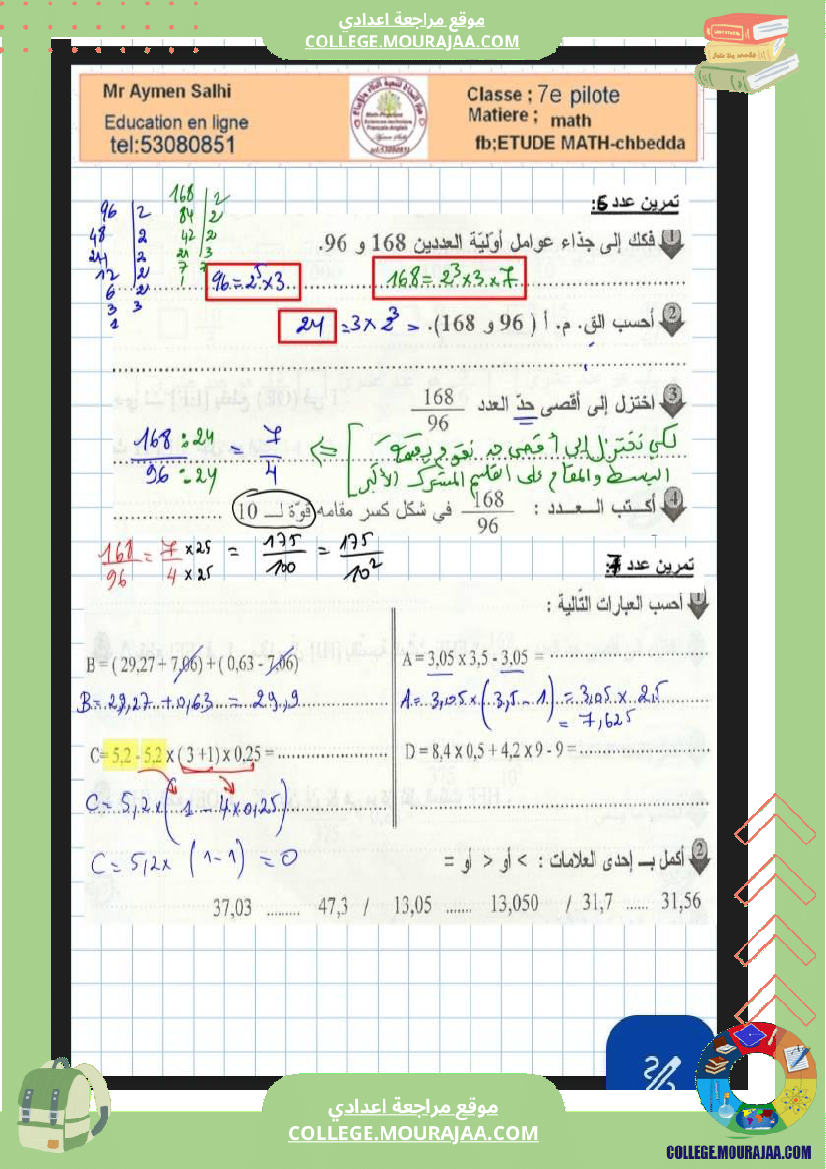 موقع مراجعة اعدادي
COLLEGE.MOURAJAA.COM
Mr Aymen Salhi
Education en ligne
tel:53080851
Classe ; 7e pilote
Matiere ; math
fb;ETUDE MATH-chbedda
تمرين عدد 6:
1 فكك إلى جذاء عوامل أوّليّة العددين 168 و 96.
96 | 2
48 | 2
24 | 2
12 | 2
6 | 2
3 | 3
1
168 | 2
84 | 2
42 | 2
21 | 3
7 | 7
1
96 = 2^5 x 3
168 = 2^3 x 3 x 7
2 أحسب الق. م. أ ( 96 و 168). = 2^3 x 3 = 24
3 اختزل إلى أقصى حدّ العدد 168/96
لكي نختزل إلى أقصى حد نقوم بقسمة
البسط والمقام على القاسم المشترك الأكبر
168 : 24 / 96 : 24 = 7/4
4 أكتب العدد : 168/96 في شكل كسر مقامه قوّة لـ 10
168/96 = 7 x 25 / 4 x 25 = 175/100 = 175/10^2
تمرين عدد 7:
1 أحسب العبارات التّالية :
A = 3,05 x 3,5 - 3,05 =
A = 3,05 x (3,5 - 1) = 3,05 x 2,5
= 7,625
B = ( 29,27 + 7,06) + ( 0,63 - 7,06)
B = 29,27 + 0,63 = 29,9
C= 5,2 - 5,2 x ( 3 +1) x 0,25 =
C = 5,2 x (1 - 4 x 0,25)
C = 5,2 x (1 - 1) = 0
D = 8,4 x 0,5 + 4,2 x 9 - 9 =
2 أكمل بـ إحدى العلامات : > أو < أو =
37,03 ......... 47,3 / 13,05 ....... 13,050 / 31,7 ...... 31,56
موقع مراجعة اعدادي
COLLEGE.MOURAJAA.COM
COLLEGE.MOURAJAA.COM